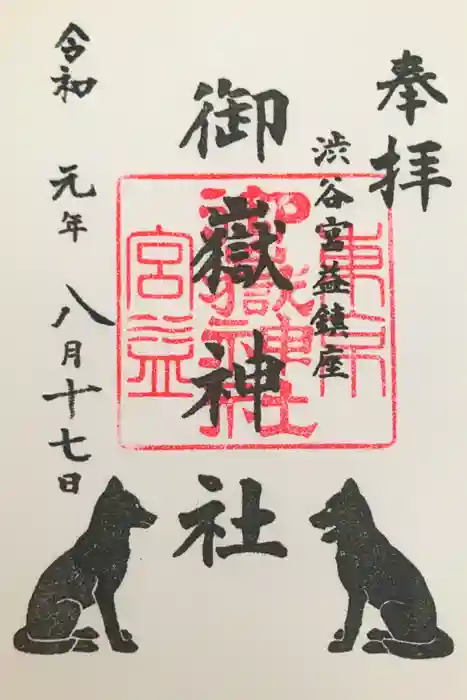 奉拝
渋谷宮益鎮座
御嶽神社
令和 元年 八月十七日
東京
御嶽神社
宮益